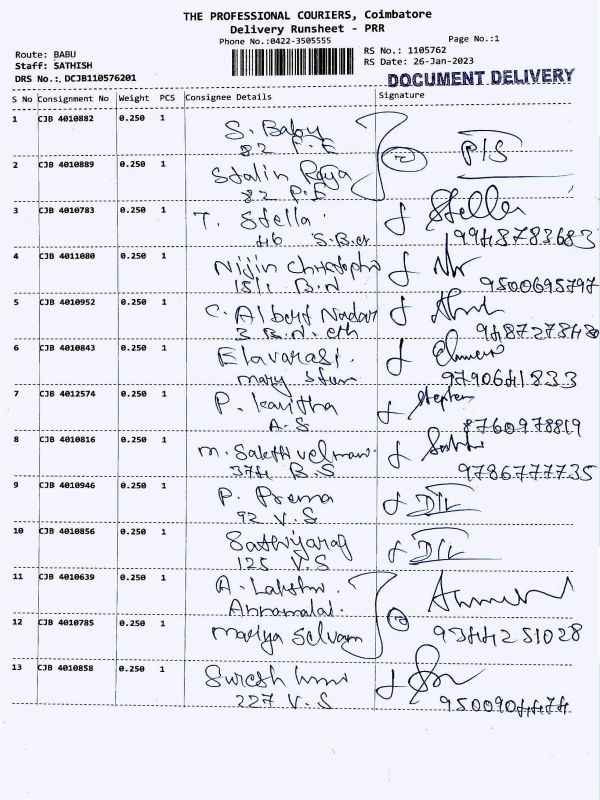 THE PROFESSIONAL COURIERS, Coimbatore
Delivery Runsheet - PRR
Phone No.:0422-3505555
Page No.:1
Route: BABU
Staff: SATHISH
DRS No.:. DCJB110576201
RS No.: 1105762
RS Date: 26-Jan-2023
DOCUMENT DELIVERY
S No Consignment No Weight PCS Consignee Details Signature
1 CJB 4010882 0.250 1 S. Baby
82 P.E
2 CJB 4010889 0.250 1 Stalin Raja P/S
82 P.E
3 CJB 4010783 0.250 1 T. Stella Stella
46 S.B.Ct 9948783683
4 CJB 4011080 0.250 1 Nijin Christopher
15/1 B.N 9500695797
5 CJB 4010952 0.250 1 C. Albert Nadar
3 B.N. 9487278480
6 CJB 4010843 0.250 1 Elavarasi.
mary 9790641833
7 CJB 4012574 0.250 1 P. Kavitha Stephen
A.S 8760978819
8 CJB 4010816 0.250 1 M. Sakthivelmani
374 B.S 9786777735
9 CJB 4010946 0.250 1 P. Prema D/L
92 V.S
10 CJB 4010856 0.250 1 Sathiyaraj D/L
125 V.S
11 CJB 4010639 0.250 1 A. Lakshmi.
Annamalai.
12 CJB 4010785 0.250 1 Mariya Selvam 9344251028
13 CJB 4010858 0.250 1 Suresh
227 V.S 9500904474